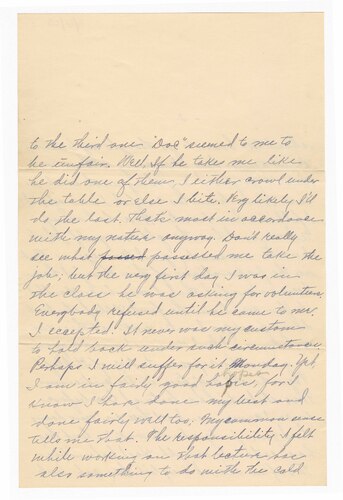 to the third one "Doc" seemed to me to
be unfair. Well, If he takes me like
he did one of them, I either crawl under
the table or else I bite. Very likely I'll
do the last. That's most in accordance
with my nature anyway. Don't really
see what possed possessed me take the
job; but the very first day I was in
the class he was asking for volunteers
Everybody refused until he came to me.
I accepted. It never was my custom
to hold back under such circumstances
Perhaps I will suffer for it Monday. Yet,
I am in fairly good hopes, for I
know I have done my best and
done fairly well too; My common sense
tells me that. The responsibility I felt
while working on that lecture has
also something to do with the cold